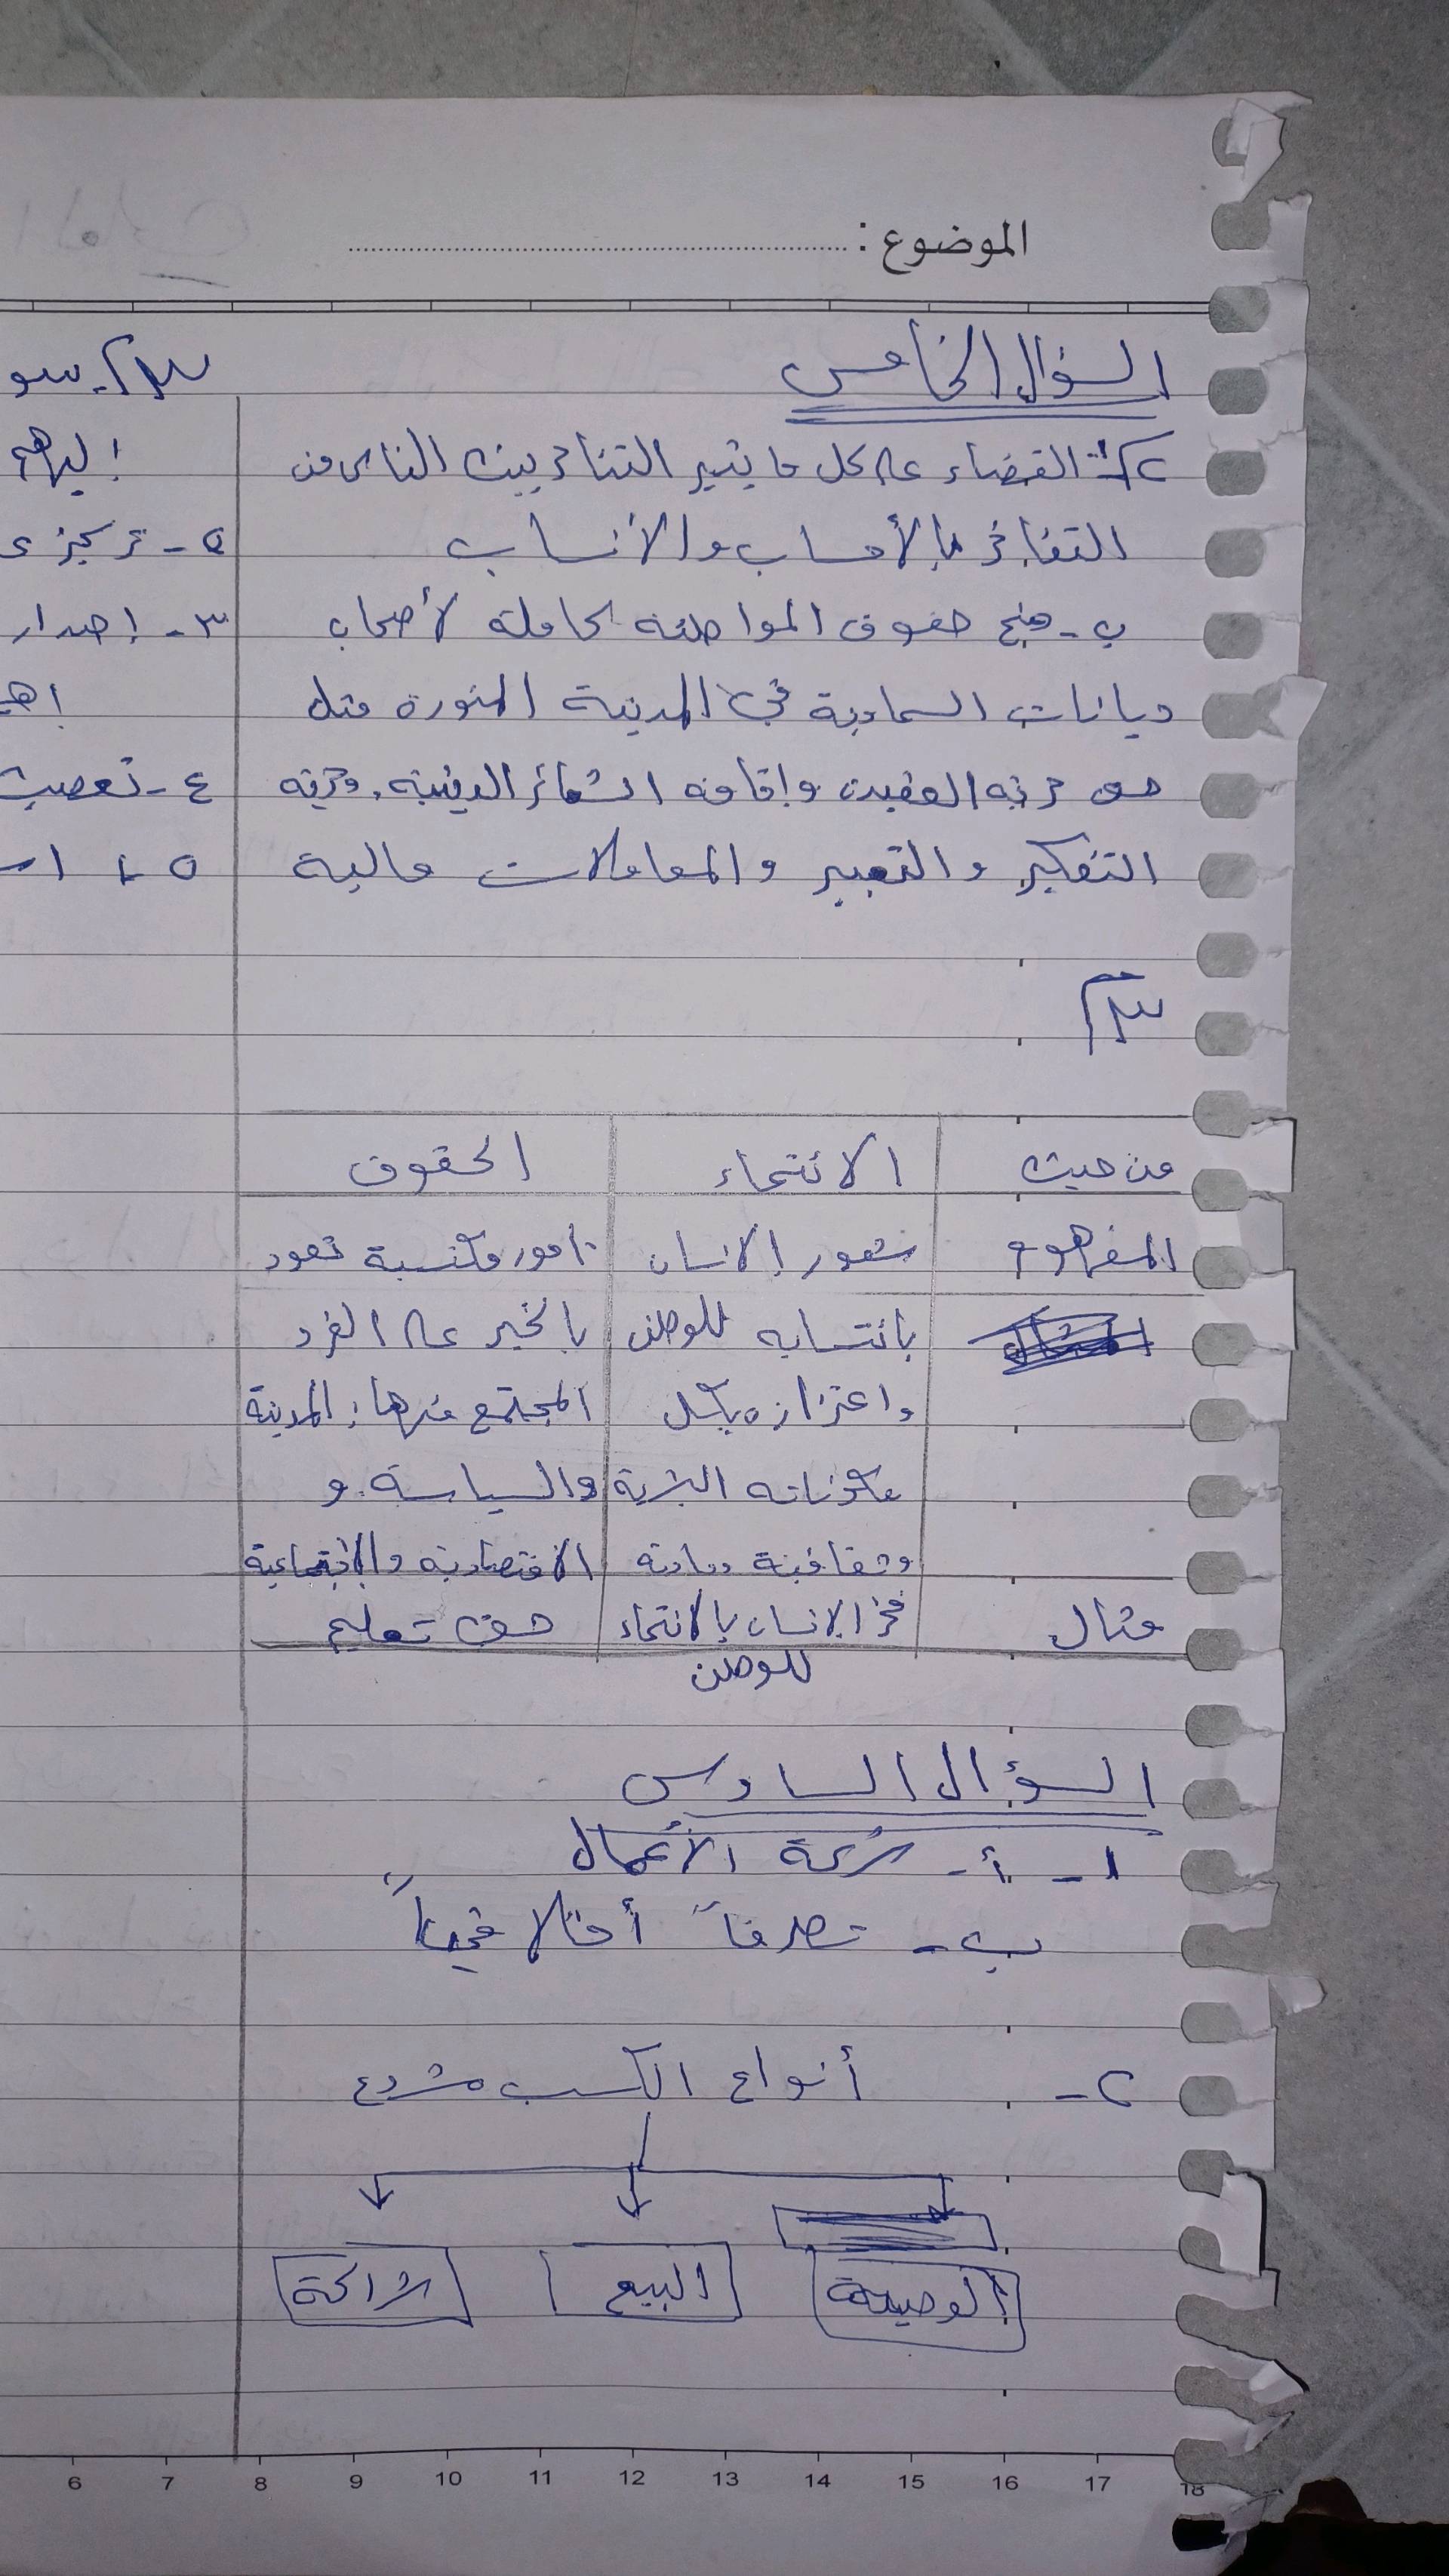 الموضوع :
السؤال الخامس
القضاء على كل ما يثير التنافر بين الناس من
التفاخر بالأحساب والأنساب
ب - منح حقوق المواطنة كاملة لأصحاب
ديانات السماوية في المدينة المنورة مثل
حق حرية العقيدة وإقامة الشعائر الدينية. وحرية
التفكير والتعبير والمعاملات مالية
س٣
من حيث الانتماء الحقوق
المفهوم شعور الانسان أمور مكتسبة تعود
بانتسابه للوطن بالخير على الفرد
واعتزازه بكل المجتمع منها: المدينة
مكوناته البشرية والسياسة و
وثقافية ومادية الاقتصادية والاجتماعية
مثال فخر الانسان بالانتماء حق تعليم
للوطن
السؤال السادس
١ - أ - شركة الأعمال
ب - تصرفاً أخلاقياً
٢ - أنواع الكسب مشروع
الوصية البيع شراكة
إليهم
٢ - تركيز
٣ - إصدار
٤ -
٥
6 7 8 9 10 11 12 13 14 15 16 17 18